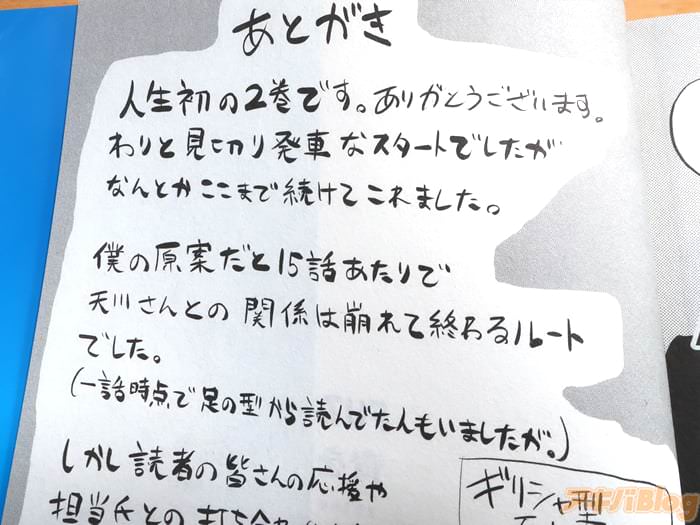 あとがき
人生初の2巻です。ありがとうございます。
わりと見切り発車なスタートでしたが
なんとかここまで続けてこれました。
僕の原案だと15話あたりで
天川さんとの関係は崩れて終わるルート
でした。
(一話時点で足の型から読んでた人もいましたが。)
しかし読者の皆さんの応援や
担当氏との打ち合わ
ギリシャ型
アキバBlog